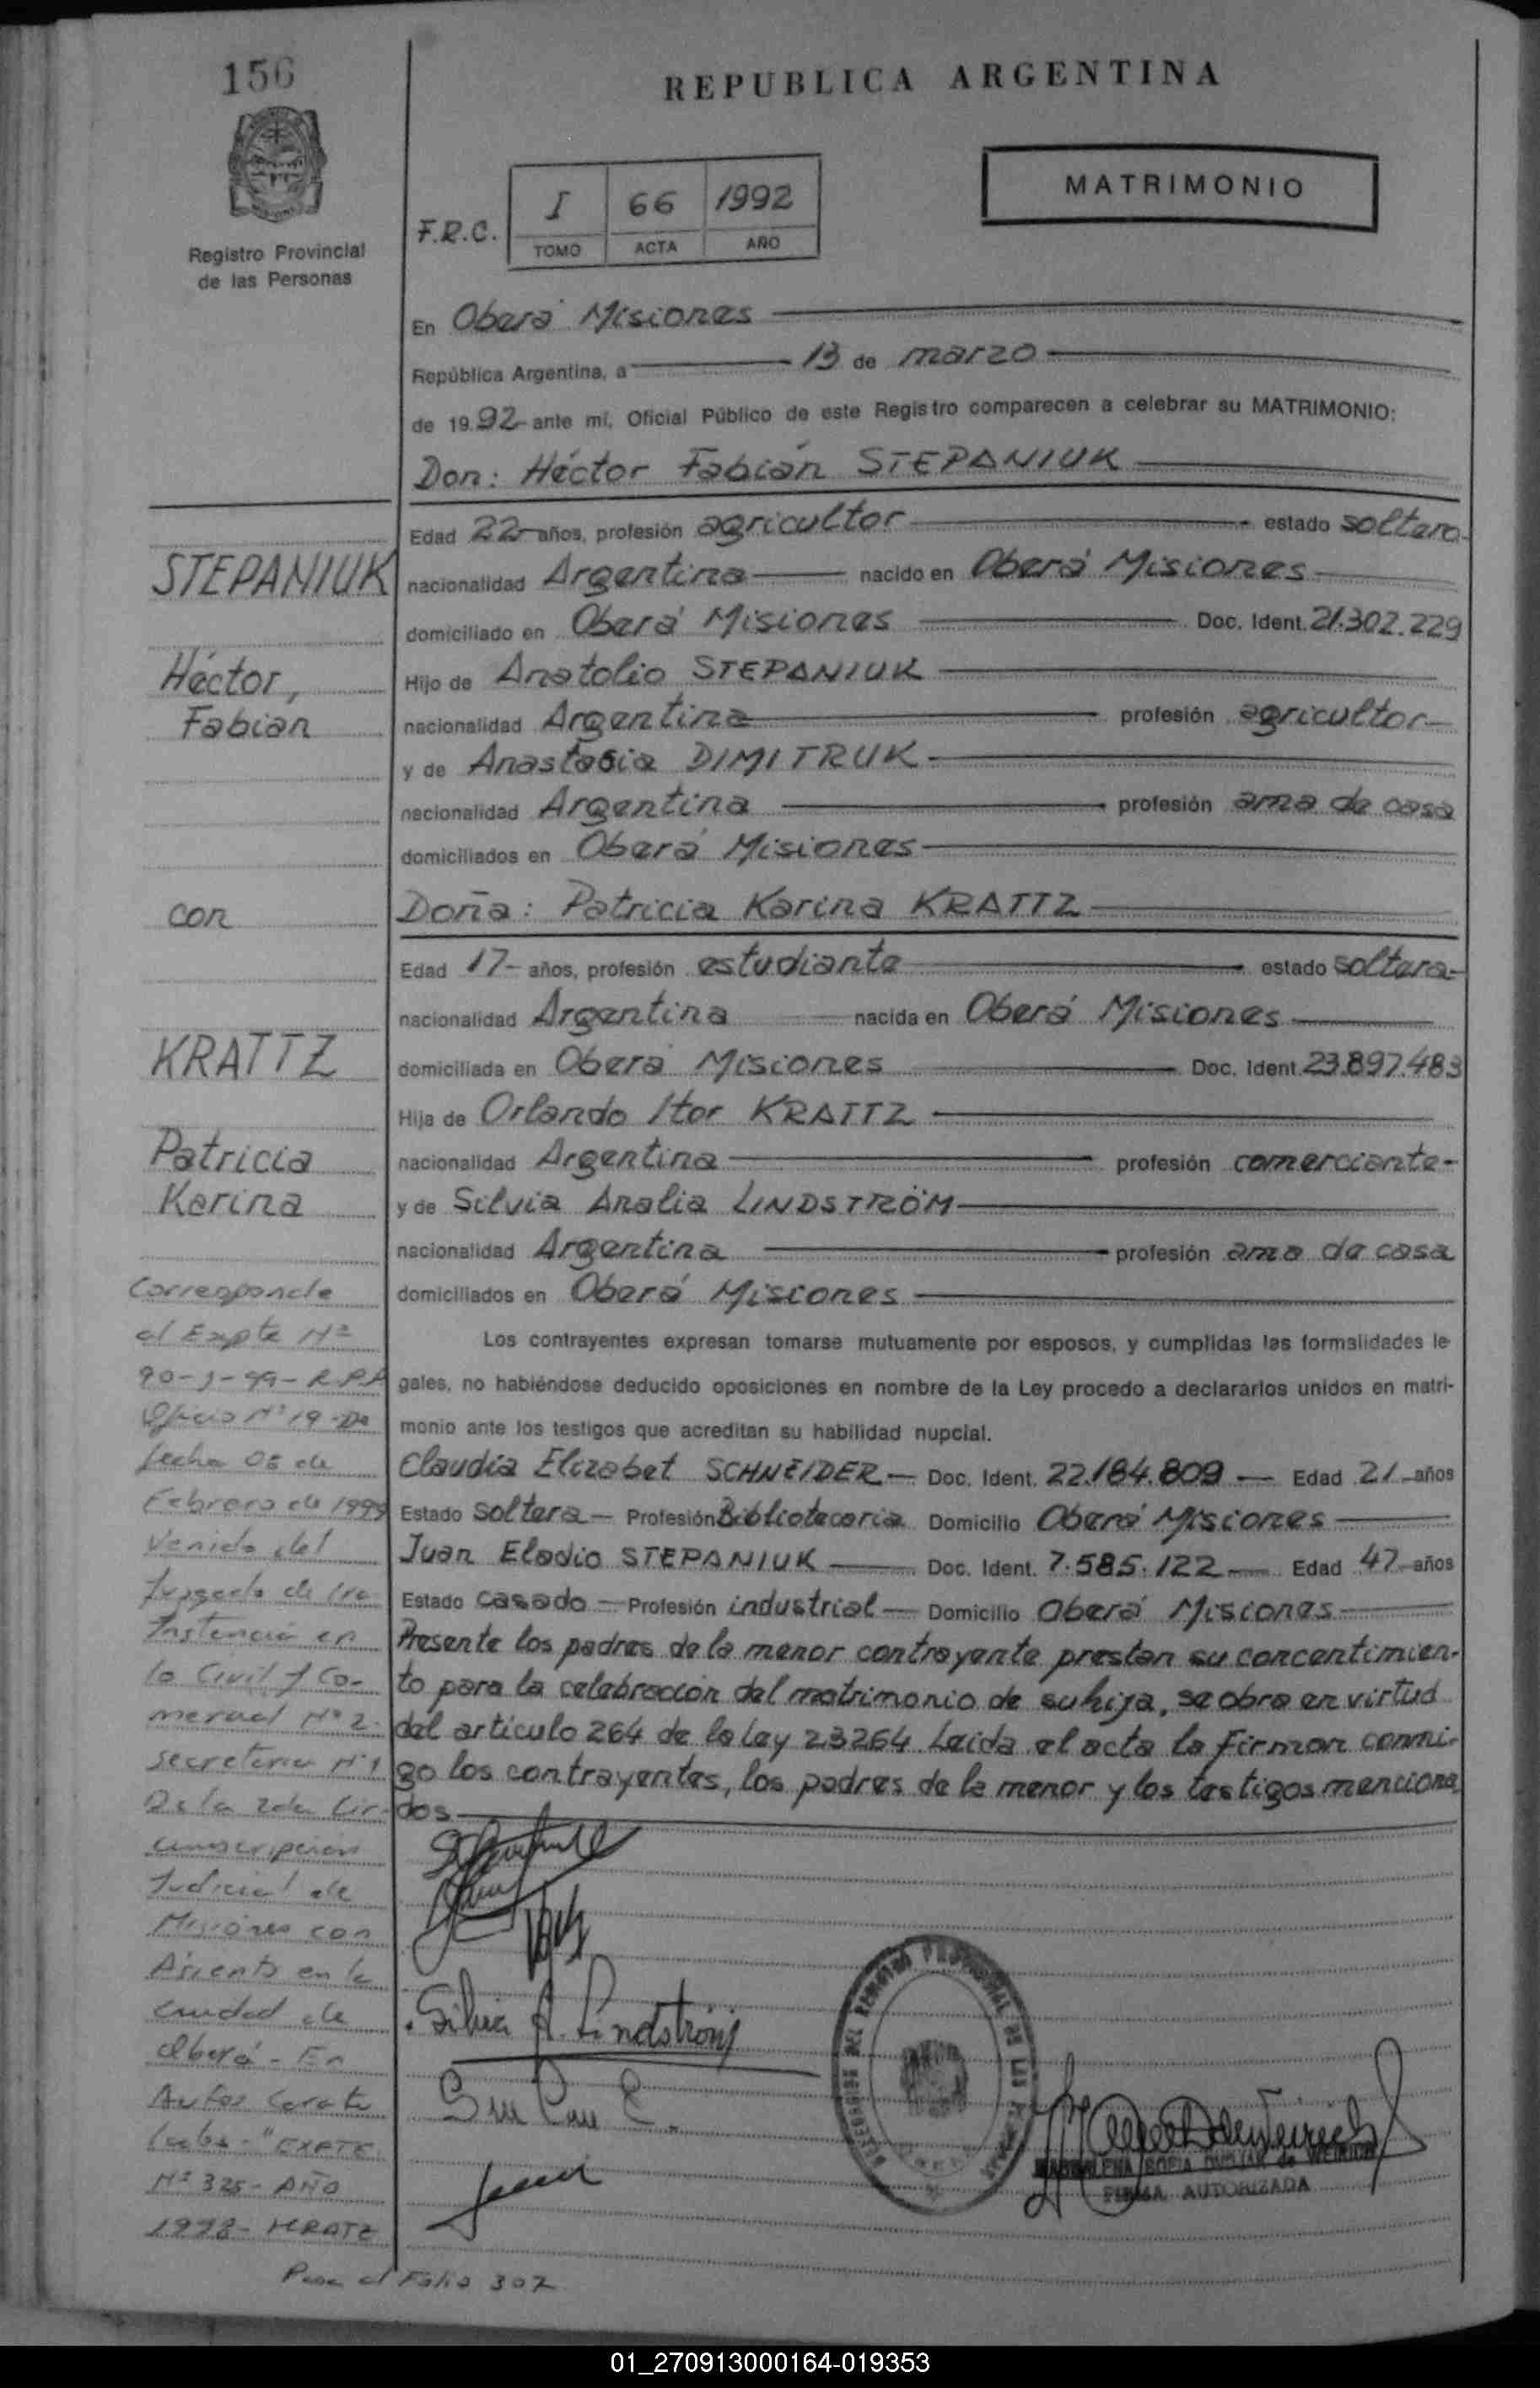 156
REPUBLICA ARGENTINA
Registro Provincial
de las Personas
F.R.C.
I 66 1992
TOMO ACTA AÑO
MATRIMONIO
En Oberá Misiones
República Argentina, a 13 de marzo
de 1992 ante mí, Oficial Público de este Registro comparecen a celebrar su MATRIMONIO:
Don: Héctor Fabián STEPANIUK
Edad 22 años, profesión agricultor estado soltero
nacionalidad Argentina nacido en Oberá Misiones
domiciliado en Oberá Misiones Doc. Ident. 21.302.229
Hijo de Anatolio STEPANIUK
nacionalidad Argentina profesión agricultor
y de Anastasia DIMITRUK
nacionalidad Argentina profesión ama de casa
domiciliados en Oberá Misiones
Doña: Patricia Karina KRATTZ
Edad 17 años, profesión estudiante estado soltera
nacionalidad Argentina nacida en Oberá Misiones
domiciliada en Oberá Misiones Doc. Ident. 23.897.483
Hija de Orlando Itor KRATTZ
nacionalidad Argentina profesión comerciante
y de Silvia Analia LINDSTRÖM
nacionalidad Argentina profesión ama de casa
domiciliados en Oberá Misiones
Los contrayentes expresan tomarse mutuamente por esposos, y cumplidas las formalidades le
gales, no habiéndose deducido oposiciones en nombre de la Ley procedo a declararlos unidos en matri-
monio ante los testigos que acreditan su habilidad nupcial.
Claudia Elizabet SCHNEIDER Doc. Ident. 22.184.809 Edad 21 años
Estado soltera Profesión Bibliotecaria Domicilio Oberá Misiones
Juan Eladio STEPANIUK Doc. Ident. 7.585.122 Edad 47 años
Estado casado Profesión industrial Domicilio Oberá Misiones
Presente los padres de la menor contrayente prestan su concentimien-
to para la celebración del matrimonio de su hija, se obra en virtud
del artículo 264 de la Ley 23264. Leida el acta la firman conmi-
go los contrayentes, los padres de la menor y los testigos menciona
dos
Silvia A. Lindström
FIRMA AUTORIZADA
STEPANIUK
Héctor,
Fabian
con
KRATTZ
Patricia
Karina
Corresponde
al Expte Nº
90-J-99-R.P.P
Oficio Nº 19-De
fecha 05 de
Febrero de 1999
Venido del
Juzgado de 1ra
Instancia en
lo Civil y Co-
mercial Nº 2
Secretaria Nº 1
De la 2da Cir-
cunscripción
Judicial de
Misiones con
Asiento en la
ciudad de
Oberá - En
Autos Carátu
lados - "EXPTE
Nº 325 - AÑO
1998 - KRATZ
Pasa al Folio 302
01_270913000164-019353